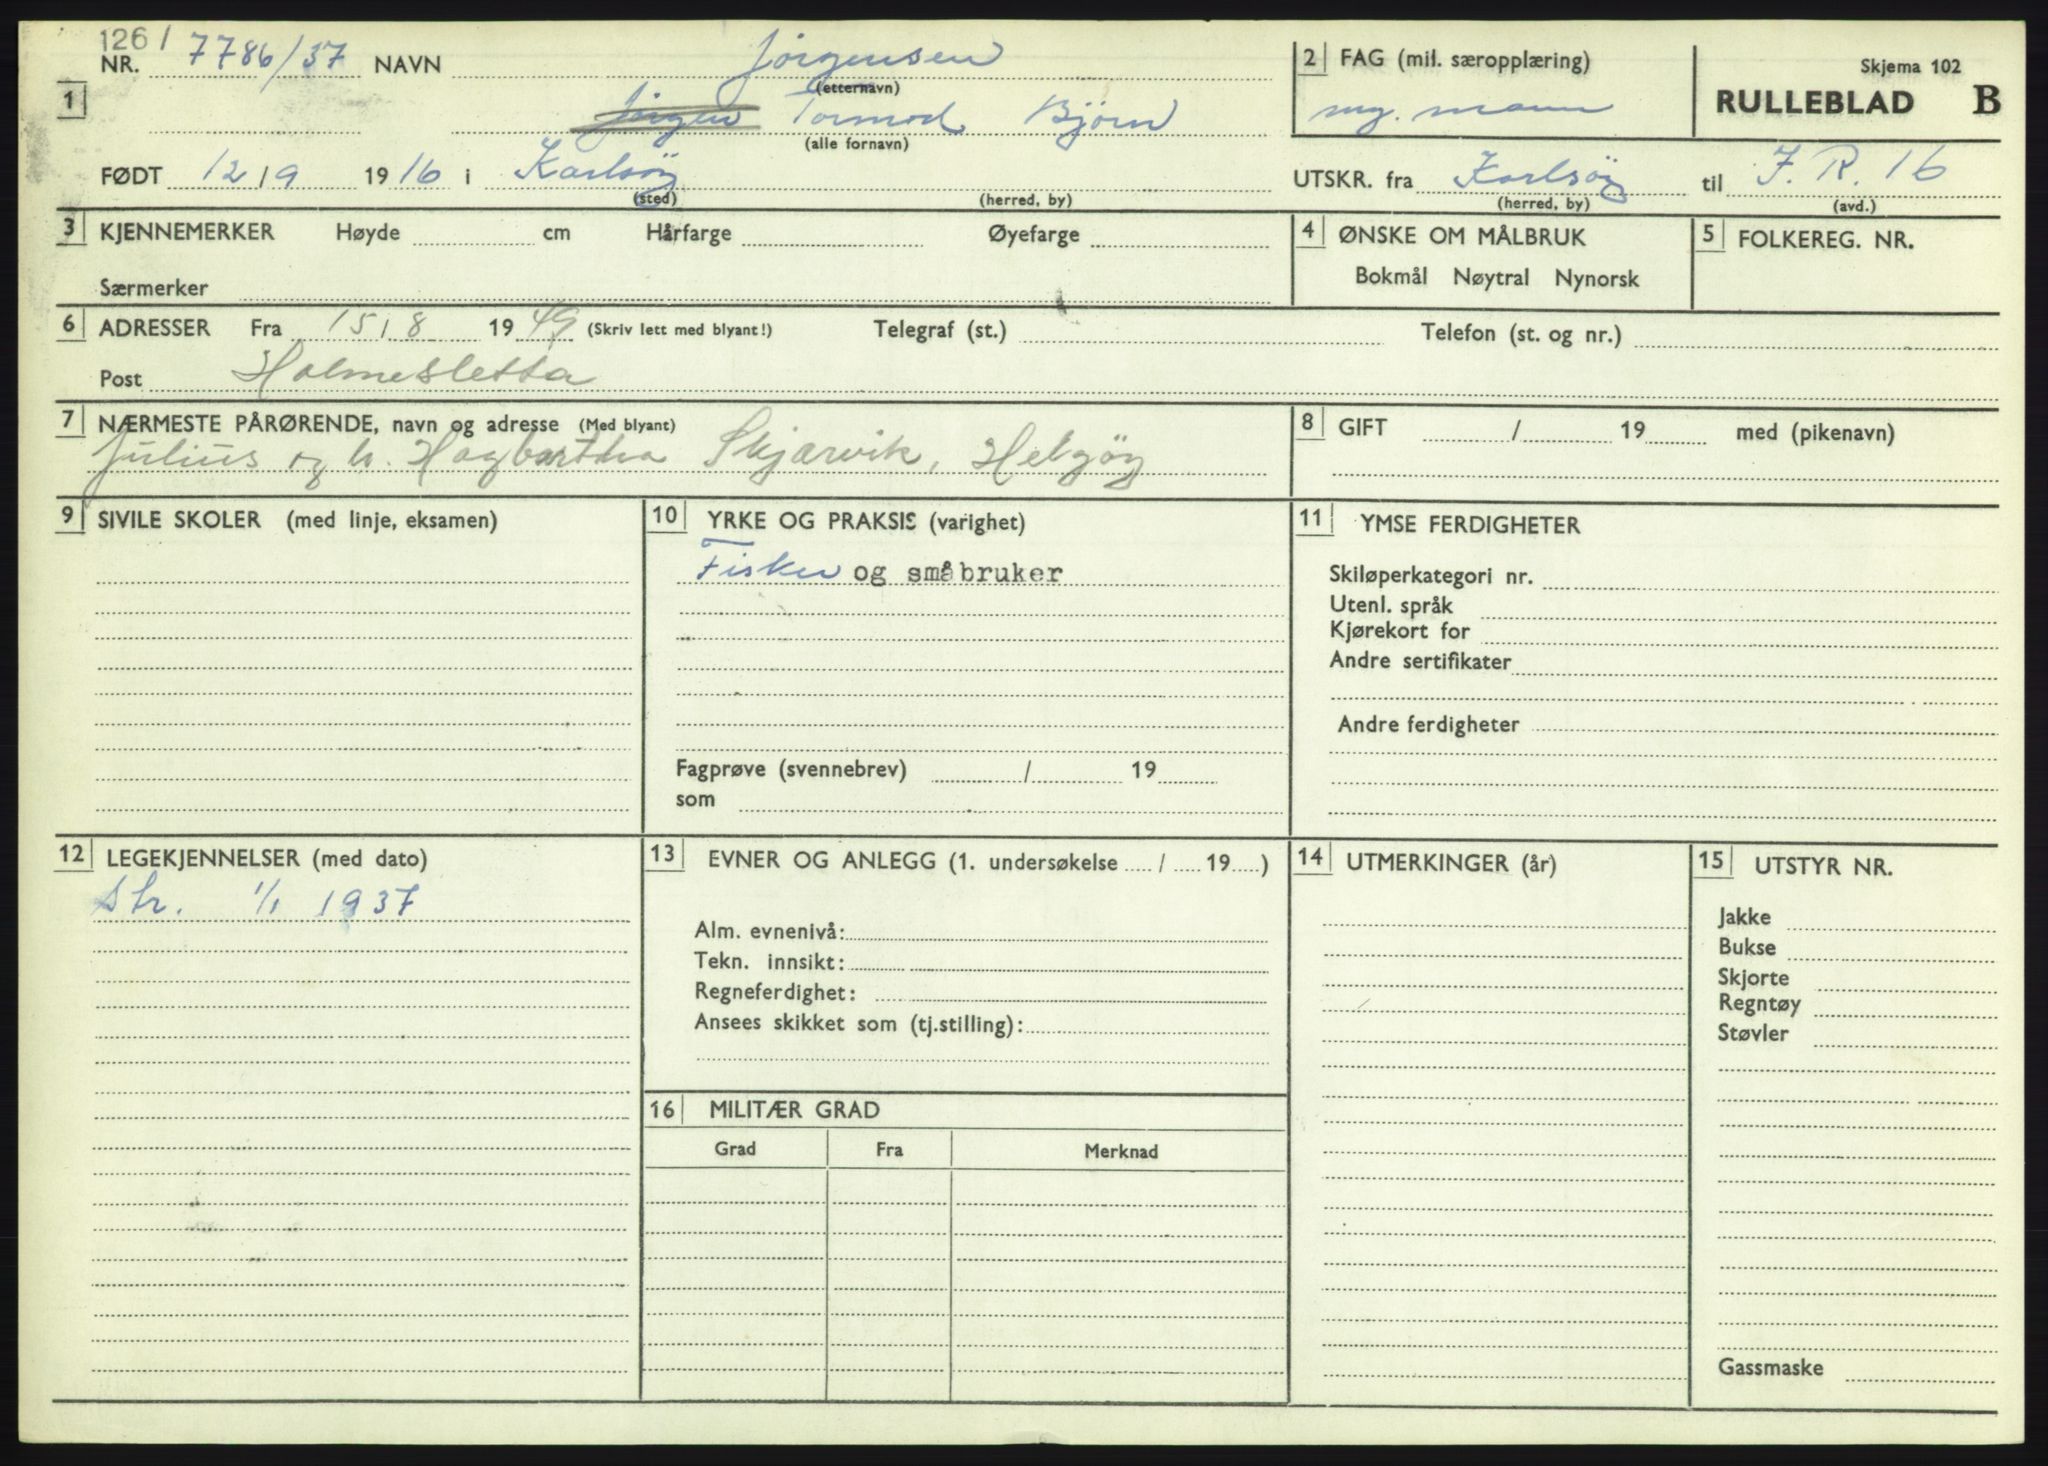 126/ 7786/37
NR. NAVN Jörgensen
(etternavn)
1 Jörgen Tormod Björn
(alle fornavn)
FØDT 12/9 1916 i Karlsöy
(sted) (herred, by)
2 FAG (mil. særopplæring)
mg. mann
Skjema 102
RULLEBLAD B
UTSKR. fra Karlsöy til I.R. 16
(herred, by) (avd.)
3 KJENNEMERKER Høyde cm Hårfarge Øyefarge
Særmerker
4 ØNSKE OM MÅLBRUK
Bokmål Nøytral Nynorsk
5 FOLKEREG. NR.
6 ADRESSER Fra 15/8 1949 (Skriv lett med blyant!) Telegraf (st.) Telefon (st. og nr.)
Post Holmesletta
7 NÆRMESTE PÅRØRENDE, navn og adresse (Med blyant)
Julius og h. Hagbartha Skjærvik, Helgöy
8 GIFT / 19 med (pikenavn)
9 SIVILE SKOLER (med linje, eksamen)
10 YRKE OG PRAKSIS (varighet)
Fisker og småbruker
Fagprøve (svennebrev) / 19
som
11 YMSE FERDIGHETER
Skiløperkategori nr.
Utenl. språk
Kjørekort for
Andre sertifikater
Andre ferdigheter
12 LEGEKJENNELSER (med dato)
Str. 1/1 1937
13 EVNER OG ANLEGG (1. undersøkelse ..... / ..... 19.....)
Alm. evnenivå:
Tekn. innsikt:
Regneferdighet:
Ansees skikket som (tj.stilling):
14 UTMERKINGER (år)
15 UTSTYR NR.
Jakke
Bukse
Skjorte
Regntøy
Støvler
Gassmaske
16 MILITÆR GRAD
Grad Fra Merknad